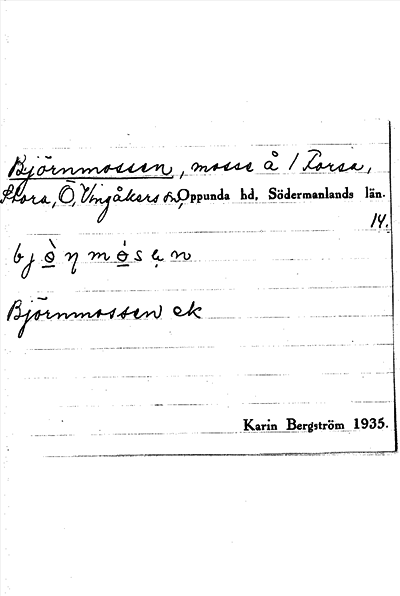 Björnmossen, mosse å 1 Forsa,
Stora, Ö. Vingåkers sn, Oppunda hd, Södermanlands län.
14.
bjö̀ṇmó̤sẹn
Björnmossen ek
Karin Bergström 1935.